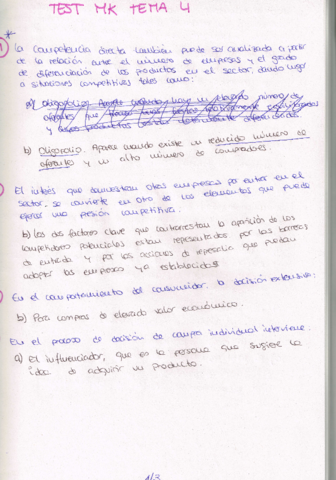 TEST MK TEMA 4
*
1 La competencia directa también puede ser analizada a partir
de la relación entre el número de empresas y el grado
de diferenciación de los productos en el sector, dando lugar
a situaciones competitivas tales como:
a) Oligopolio. Aparece cuando existe un elevado número de
oferentes que
b) Oligopolio. Aparece cuando existe un reducido número de
oferentes y un alto número de compradores.
El interés que demuestran otras empresas por entrar en el
sector, se convierte en otro de los elementos que puede
ejercer una presión competitiva.
b) los dos factores clave que contrarrestan la aparición de los
competidores potenciales están representados por las barreras
de entrada y por las acciones de represalia que puedan
adoptar las empresas ya establecidas
En el comportamiento del consumidor, la decisión extensiva:
b) Para compras de elevado valor económico.
En el proceso de decisión de compra individual interviene:
a) El influenciador, que es la persona que sugiere la
idea de adquirir un producto.
1/3